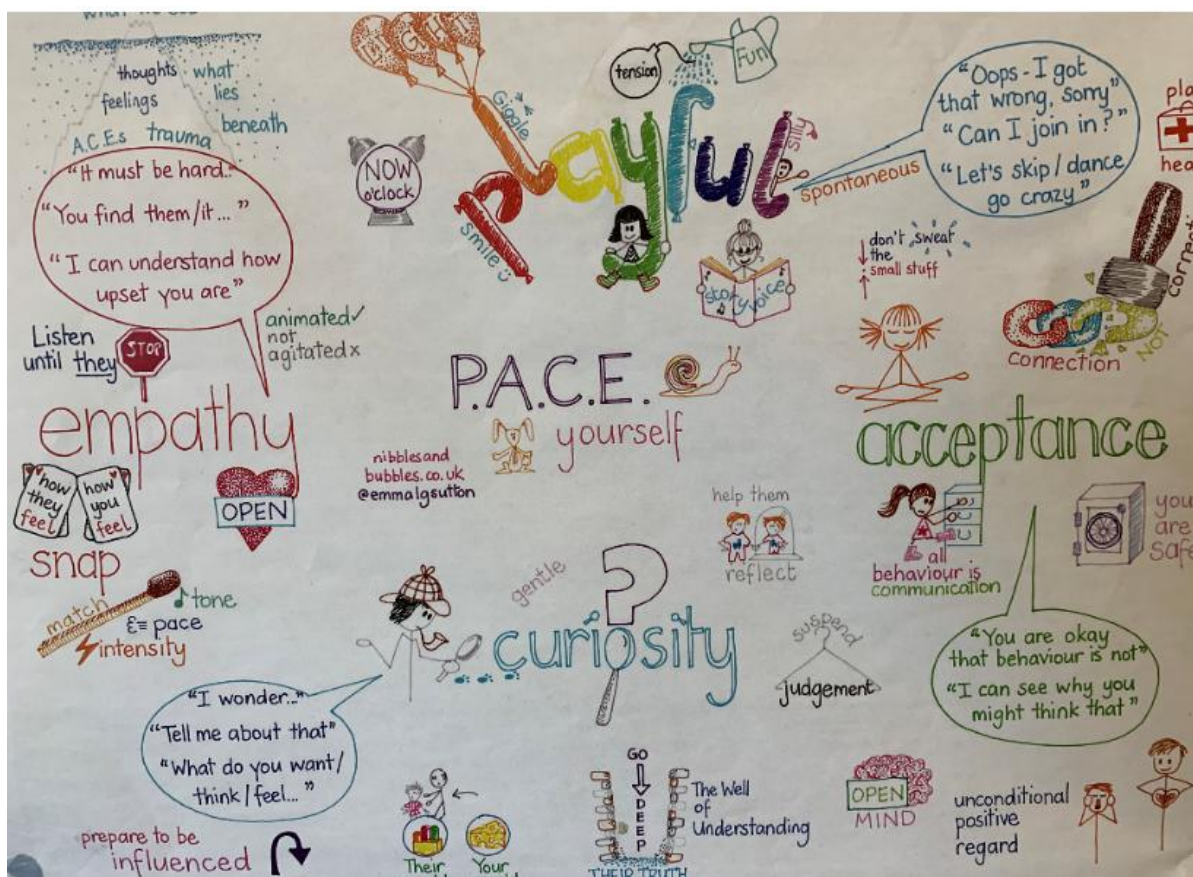 what we see
thoughts
feelings
what
lies
beneath
A.C.E.s trauma
"It must be hard.."
"You find them/it... "
"I can understand how
upset you are"
Listen
until they
STOP
animated✓
not
agitated x
empathy
how
they
feel
how
you
feel
snap
OPEN
match
tone
pace
intensity
LIGHT
Giggle
tension
Fun
NOW
o'clock
Playful
silly
smile
spontaneous
story voice
"Oops - I got
that wrong, sorry"
"Can I join in?"
"Let's skip / dance
go crazy"
don't sweat
the
small stuff
connection
NOT
P.A.C.E.
yourself
nibblesand
bubbles.co.uk
@emmalgsutton
acceptance
help them
reflect
all
behaviour is
communication
you
are
safe
"You are okay
that behaviour is not"
"I can see why you
might think that"
gentle
?
curiosity
suspend
judgement
"I wonder..."
"Tell me about that"
"What do you want/
think/feel... "
prepare to be
influenced
Their
Your
GO
DEEP
THEIR TRUTH
The Well
of
Understanding
OPEN
MIND
unconditional
positive
regard